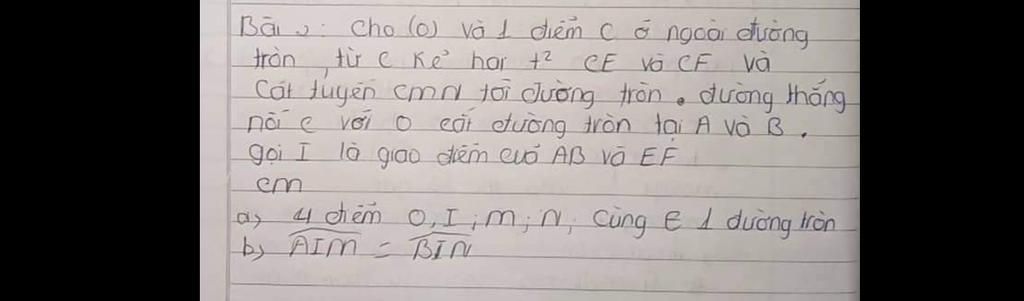 Bài 2: Cho (O) và 1 điểm C ở ngoài đường
tròn, từ C kẻ hai t² CE và CF và
Cát tuyến CMN tới đường tròn. đường thẳng
nối C với O cắt đường tròn tại A và B.
gọi I là giao điểm cuả AB và EF
cm
a, 4 điểm O, I, M, N, Cùng ∈ 1 đường tròn
b, \widehat{AIM} = \widehat{BIN}